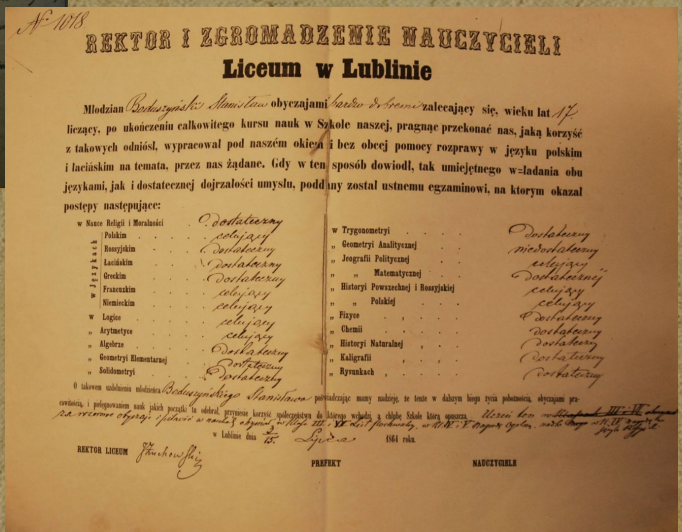 N 1078
REKTOR I ZGROMADZENIE NAUCZYCIELI
Liceum w Lublinie
Młodzian Boduszyński Stanisław obyczajami bardzo dobremi zalecający się, wieku lat 17
liczący, po ukończeniu całkowitego kursu nauk w Szkole naszej, pragnąc przekonać nas, jaką korzyść
z takowych odniósł, wypracował pod naszém okiem i bez obcej pomocy rozprawy w języku polskim
i łacińskim na temata, przez nas żądane. Gdy w ten sposób dowiódł, tak umiejętnego w=ładania obu
językami, jak i dostatecznej dojrzałości umysłu, poddany został ustnemu egzaminowi, na którym okazał
postępy następujące:
w Nauce Religii i Moralności dostateczny
w Językach
Polskim celujący
Rossyjskim dostateczny
Łacińskim dostateczny
Greckim dostateczny
Francuzkim celujący
Niemieckim celujący
w Logice celujący
„ Arytmetyce celujący
„ Algebrze Dostateczny
„ Geometryi Elementarnej dostateczny
„ Solidometryi Dostateczny
w Trygonometryi Dostateczny
„ Geometryi Analitycznej niedostateczny
„ Jeografii Politycznej celujący
„ „ Matematycznej Dostateczny
„ Historyi Powszechnej i Rossyjskiej celujący
„ „ Polskiej celujący
Fizyce Dostateczny
„ Chemii Dostateczny
„ Historyi Naturalnej Dostateczny
„ Kaligrafii Dostateczny
„ Rysunkach celujący
O takowem uzdolnieniu młodzieńca Boduszyńskiego Stanisława poświadczając mamy nadzieję, że tenże w dalszym biegu życia pobożnością, obyczajami pra-
cowitością, i pielęgnowaniem nauk jakich początki tu odebrał, przyniesie korzyść społeczeństwu do którego wchodzi, a chlubę Szkole którą opuszcza. Uczeń ten w
za wzorowe obyczaje i pilność w nauce otrzymał w klasie III i VI List pochwalny, w
w Lublinie dnia 3/15 Lipca 1864 roku.
REKTOR LICEUM
PREFEKT
NAUCZYCIELE